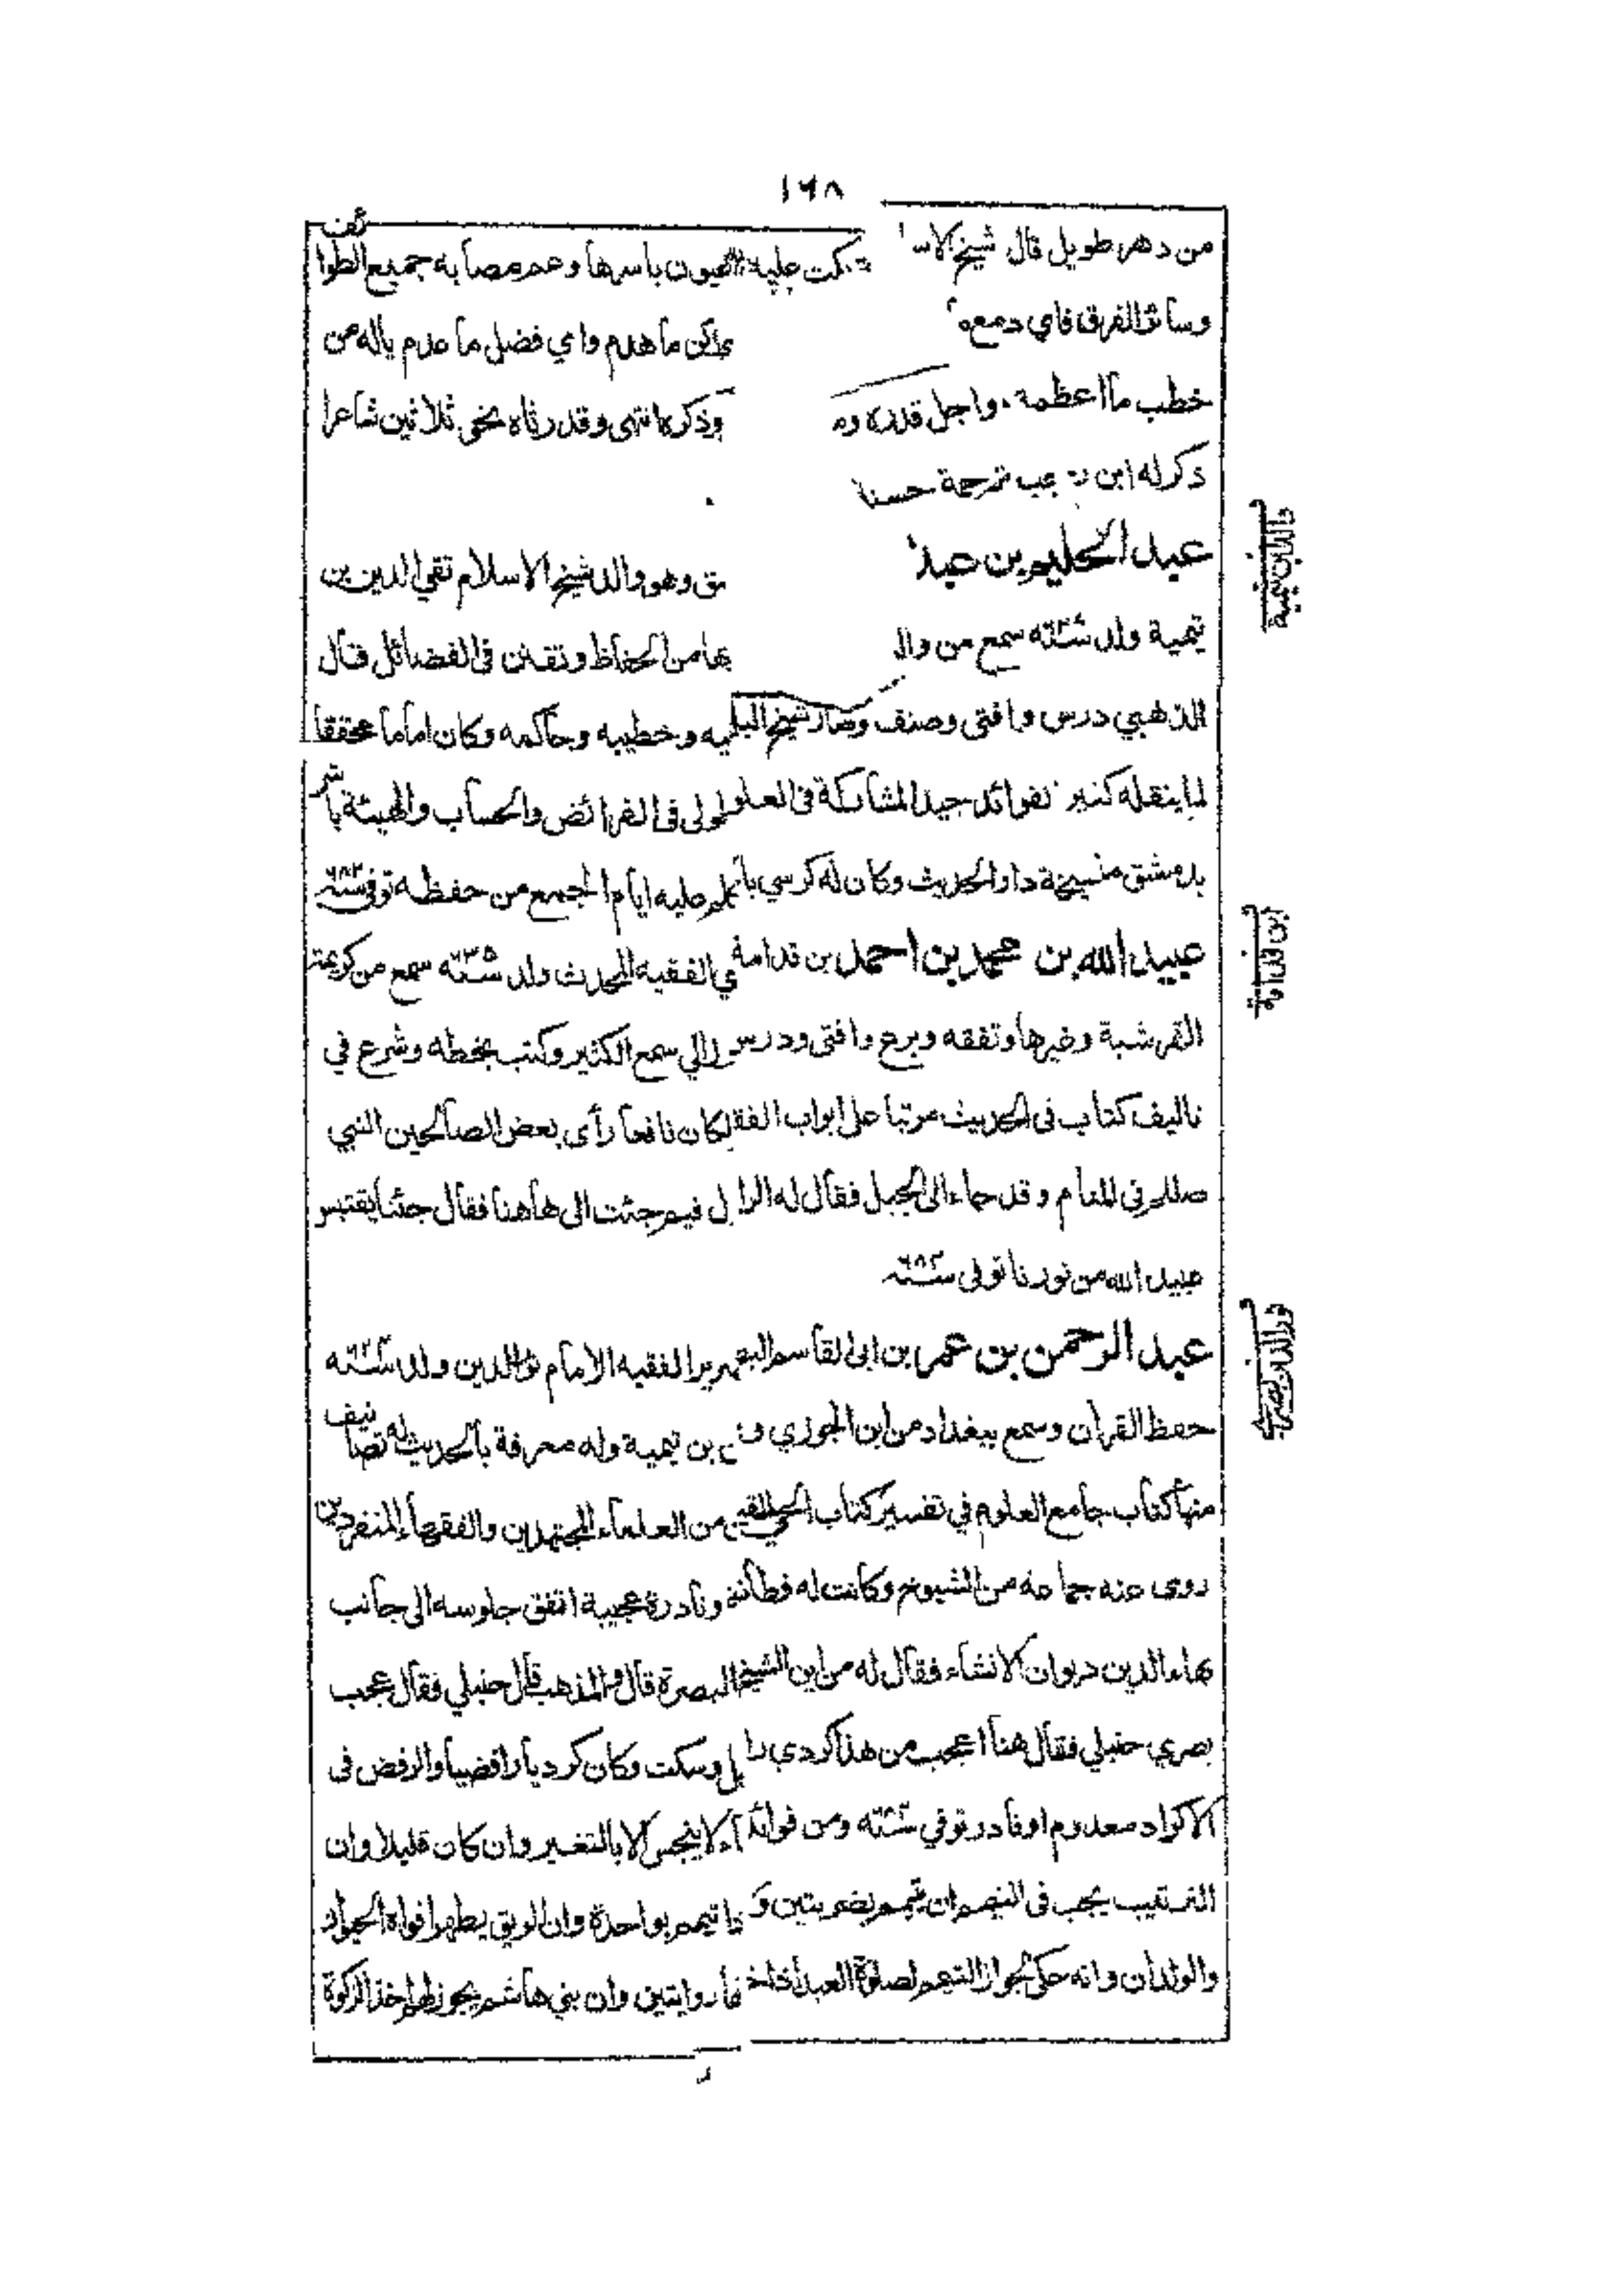 ١٦٨
من دهر طويل قال شيخ بكت عليه العيون باسرها وعم مصابه جميع الطوائف
وسائر الفرق فاي دمع ركن ما هدم واي فضل ما عدم ياله من
خطب ما اعظمه واجل قدره وذكرها انتهى وقد رثاه نحو ثلاثين شاعرا
ذكر له ابن رجب ترجمة حسنا
عبد الحليم بن عبد وهو والد شيخ الاسلام تقي الدين بن
تيمية ولد سنة ٦٢٧ سمع من وال بها من الحفاظ وتفنن في الفضائل قال
الذهبي درس وافتى وصنف وصار شيخ البلد وخطيبه وحاكمه وكان اماما محققا
لما ينقله كثير الفوائد جيد المشاركة في العلوم في الفرائض والحساب والهيئة باشر
بدمشق مشيخة دار الحديث وكان له كرسي يتكلم عليه ايام الجمع من حفظه توفي سنة ٦٨٢
عبيد الله بن محمد بن احمد بن قدامة الفقيه المحدث ولد سنة ٦٣٥ سمع من كريمة
القرشية وغيرها وتفقه وبرع وافتى ودرس سمع الكثير وكتب بخطه وشرع في
تاليف كتاب في الحديث مرتبا على ابواب الفقه كان نافعا رأى بعض الصالحين النبي
صللم في المنام وقد جاء الى الجبل فقال له فيم جئت الى هاهنا فقال جئنا يقتبس
عبيد الله من نورنا توفي سنة ٦٨٤
عبد الرحمن بن عمر بن ابي القاسم الفقيه الامام نور الدين ولد سنة ٦٢٤
حفظ القران وسمع ببغداد من ابن الجوزي بن تيمية وله معرفة بالحديث له تصانيف
منها كتاب جامع العلوم في تفسير كتاب الحي القيوم من العلماء المجتهدين والفقهاء المنفردين
روى عنه جماعة من الشيوخ وكانت له فطانة ونادرة عجيبة اتفق جلوسه الى جانب
بهاء الدين ديوان الانشاء فقال له من اين الشيخ البصرة قال والمذهب قال حنبلي فقال عجب
بصري حنبلي فقال هنا اعجب من هذا كردي وسكت وكان كرديا رافضيا والرفض في
الاكراد معدوم او نادر توفي سنة ٦٨٤ ومن فوائد لا ينجس الا بالتغير وان كان قليلا وان
الترتيب يجب في التيمم ان تيمم بضربتين تيمم بواحدة وان الريق يطهر افواه الحيوان
والولدان وانه حكى لجواز التيمم لصلوة العيد اذا روايتين وان بني هاشم يجوز لهم اخذ الزكوة
والد ابن تيمية
ابن قدامة
نور الدين بصري